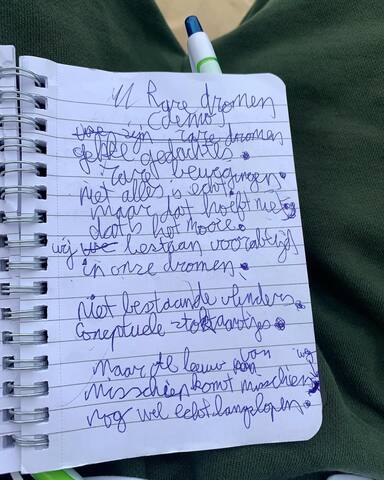 Rare dromen
(demo)
zijn rare dromen
gekke gedachtes.
rare bewegingen.
niet alles is echt,
maar dat hoeft niet
dat is het mooie.
wij bestaan voor altijd
in onze dromen.
niet bestaande vlinders
Conceptuele
Maar de leeuw van
misschien komt misschien
nog wel echt langslopen.